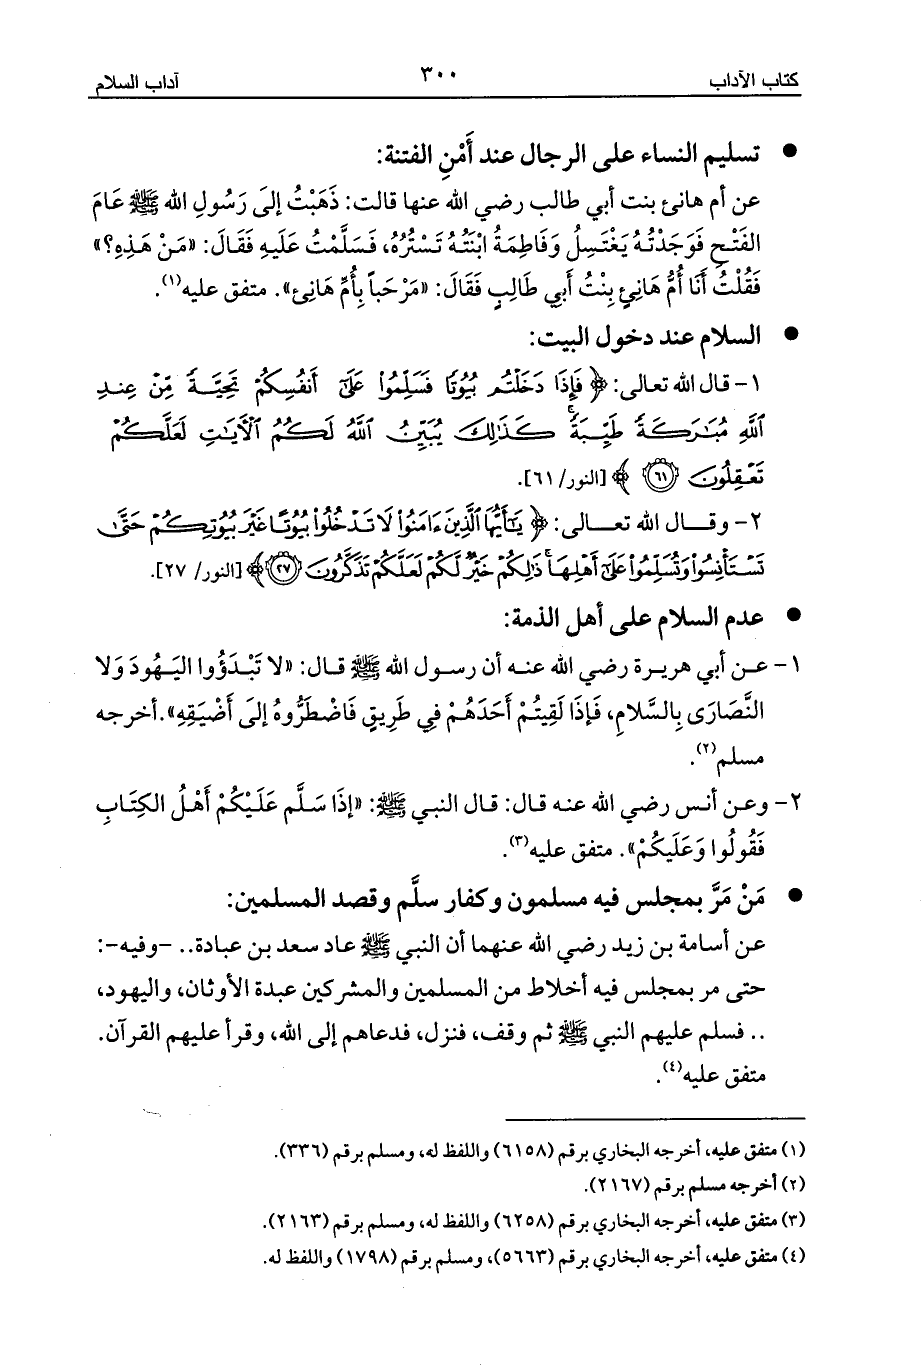 كتاب الآداب ٣٠٠ آداب السلام
● تسليم النساء على الرجال عند أَمْنِ الفتنة:
عن أم هانئ بنت أبي طالب رضي الله عنها قالت: ذَهَبْتُ إلَى رَسُولِ الله ﷺ عَامَ
الفَتْحِ فَوَجَدْتُهُ يَغْتَسِلُ وَفَاطِمَةُ ابْنَتُهُ تَسْتُرُهُ، فَسَلَّمْتُ عَلَيهِ فَقَالَ: «مَنْ هَذِهِ؟»
فَقُلْتُ أَنَا أُمُّ هَانِئٍ بِنْتُ أَبِي طَالِبٍ فَقَالَ: «مَرْحَباً بِأُمِّ هَانِئ». متفق عليه(١).
● السلام عند دخول البيت:
١- قال الله تعالى: ﴿ فَإِذَا دَخَلْتُم بُيُوتًا فَسَلِّمُوا۟ عَلَىٰٓ أَنفُسِكُمْ تَحِيَّةً مِّنْ عِندِ
ٱللَّهِ مُبَٰرَكَةً طَيِّبَةً ۚ كَذَٰلِكَ يُبَيِّنُ ٱللَّهُ لَكُمُ ٱلْآيَٰتِ لَعَلَّكُمْ
تَعْقِلُونَ ٦١ ﴾ [النور/ ٦١].
٢- وقال الله تعالى: ﴿ يَٰٓأَيُّهَا الَّذِينَ ءَامَنُوا۟ لَا تَدْخُلُوا۟ بُيُوتًا غَيْرَ بُيُوتِكُمْ حَتَّىٰ
تَسْتَأْنِسُوا۟ وَتُسَلِّمُوا۟ عَلَىٰٓ أَهْلِهَا ۚ ذَٰلِكُمْ خَيْرٌ لَّكُمْ لَعَلَّكُمْ تَذَكَّرُونَ ٢٧ ﴾ [النور/ ٢٧].
● عدم السلام على أهل الذمة:
١- عن أبي هريرة رضي الله عنه أن رسول الله ﷺ قال: «لا تَبْدَؤُوا اليَهُودَ وَلا
النَّصَارَى بِالسَّلامِ، فَإذَا لَقِيتُمْ أَحَدَهُمْ فِي طَرِيقٍ فَاضْطَرُّوهُ إلَى أَضْيَقِهِ».أخرجه
مسلم(٢).
٢- وعن أنس رضي الله عنه قال: قال النبي ﷺ: «إذَا سَلَّم عَلَيْكُمْ أَهْلُ الكِتَابِ
فَقُولُوا وَعَلَيكُمْ». متفق عليه(٣).
● مَنْ مَرَّ بمجلس فيه مسلمون وكفار سلَّم وقصد المسلمين:
عن أسامة بن زيد رضي الله عنهما أن النبي ﷺ عاد سعد بن عبادة.. -وفيه-:
حتى مر بمجلس فيه أخلاط من المسلمين والمشركين عبدة الأوثان، واليهود،
.. فسلم عليهم النبي ﷺ ثم وقف، فنزل، فدعاهم إلى الله، وقرأ عليهم القرآن.
متفق عليه(٤).
(١) متفق عليه، أخرجه البخاري برقم (٦١٥٨) واللفظ له، ومسلم برقم (٣٣٦).
(٢) أخرجه مسلم برقم (٢١٦٧).
(٣) متفق عليه، أخرجه البخاري برقم (٦٢٥٨) واللفظ له، ومسلم برقم (٢١٦٣).
(٤) متفق عليه، أخرجه البخاري برقم (٥٦٦٣)، ومسلم برقم (١٧٩٨) واللفظ له.